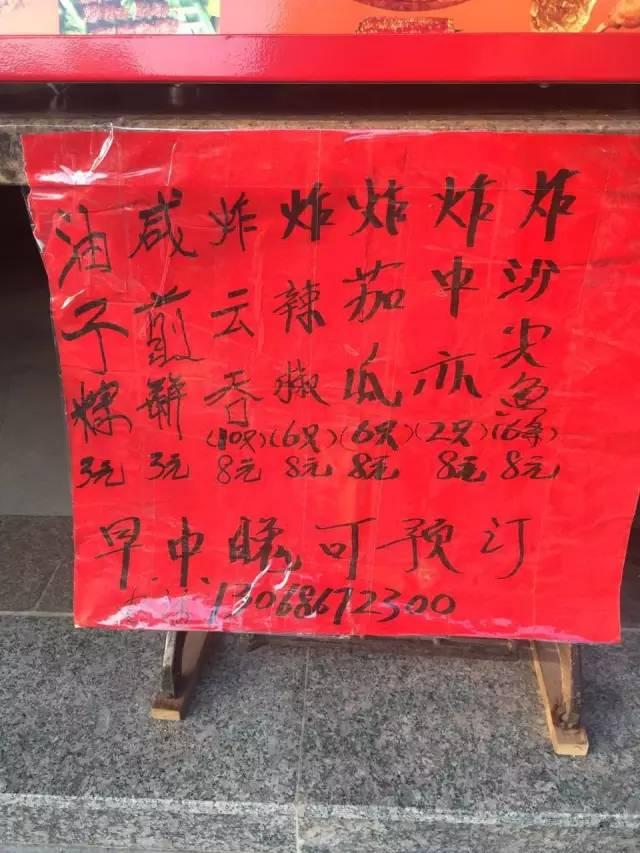 油 3元
咸煎餅 3元
炸云吞(10只) 8元
炸辣椒(6只) 8元
炸茄瓜(6只) 8元
炸中亦(2只) 8元
炸沙尖鱼(16条) 8元
早中晚可预订
13068672300